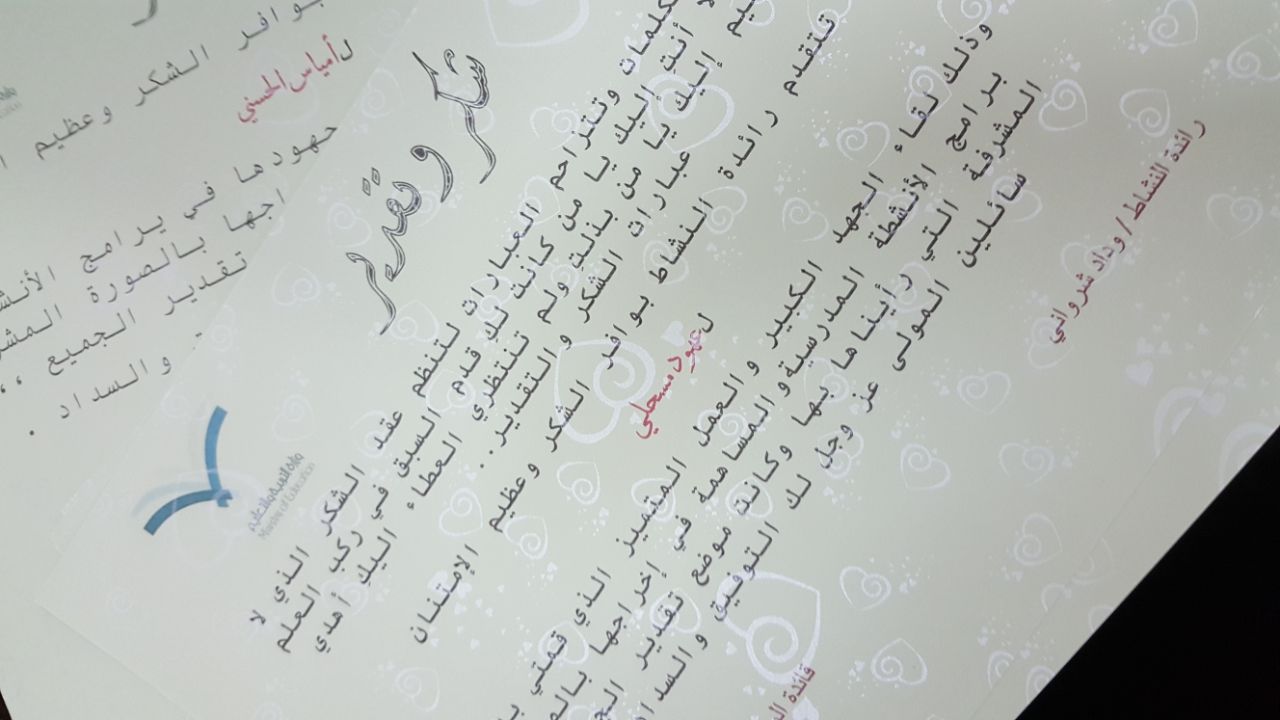 بوافر الشكر وعظيم
لـ أمياس الحسني
جهودها في برامج الأنش
اجها بالصورة المشر
تقدير الجميع ،،
والسداد .
وزارة التعليم
Ministry of Education
شكر وتقدير
كلمات وتتزاحم العبارات لتنظم عقد الشكر الذي لا
أنت إليك يا من كانت لك قدم السبق في ركب العلم
إليك يا من بذلت ولم تنتظري العطاء إليك أهدي
عبارات الشكر والتقدير..
تتقدم رائدة النشاط بوافر الشكر وعظيم الإمتنان
لـ عهود مسحلي
وذلك لقاء الجهد الكبير والعمل المتميز الذي قمتي
برامج الأنشطة المدرسية والمساهمة في إخراجها
المشرفة التي رأيناها بها وكانت موضع تقدير
سائلين المولى عز وجل لك التوفيق والسدا
رائدة النشاط / وداد شرواني
قائدة